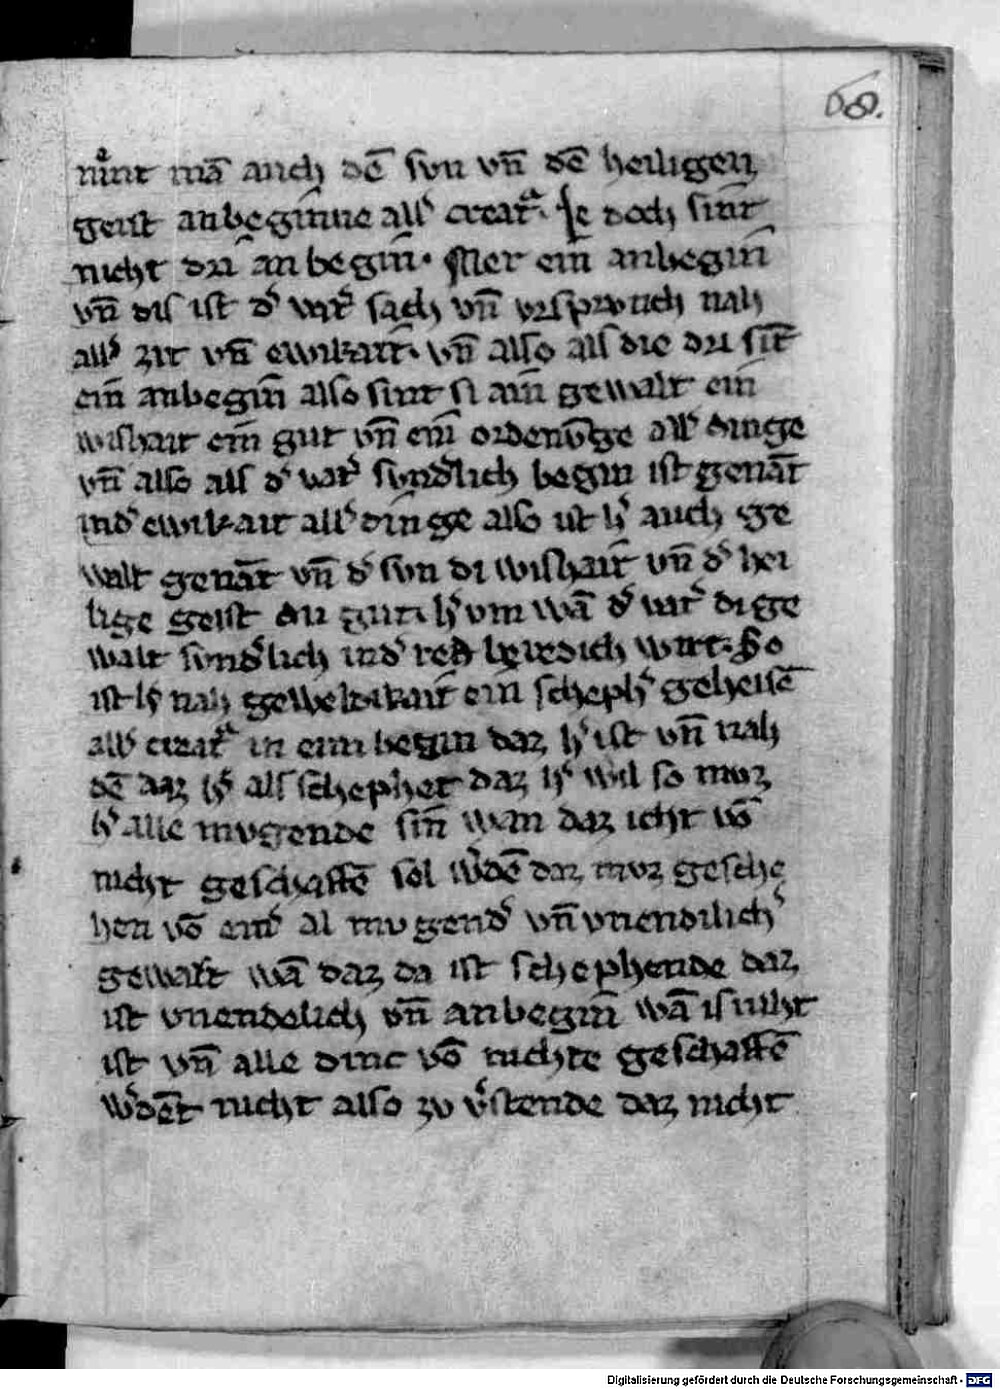 68.
nimt mā auch dē sun vn̄ dē heiligen
geist anbeginne all' creat'. Je doch sint
nicht dri anbegin̄. Mer ein anbegin̄
vn̄ dis ist d' vat' sach vn̄ vrsprunch nah
all' zit vn̄ ewikait. vn̄ also als die dri sīt
ein anbegin̄ also sint si ain gewalt ein
wishait ein gut vn̄ ein ordenūge all' dinge
vn̄ also als d' vat' sund'lich begin ist genāt
in d' ewikait all' dinge also ist h' auch ge
walt genāt vn̄ d' sun di wishait vn̄ d' hei
lige geist du gut. h' vm wā d' vat' di ge
walt sund'lich in d' red wirt. So
ist h' nah geweltikait ein scheph' geheisē
all' creat' in eim begin daz h' ist vn̄ nah
dē daz h' als schepher daz h' wil so muz
h' alle mugende sin wan daz icht vō
nicht geschaffē sol w'dē daz muz gesche
hen vō ein' al mugend' vn̄ vnendilich'
gewalt wā daz da ist schephende daz
ist vnendelich vn̄ anbegin̄ wā is niht
ist vn̄ alle dinc vō nichte geschaffē
w'dēt nicht also zu v'stende daz nicht
Digitalisierung gefördert durch die Deutsche Forschungsgemeinschaft - DFG